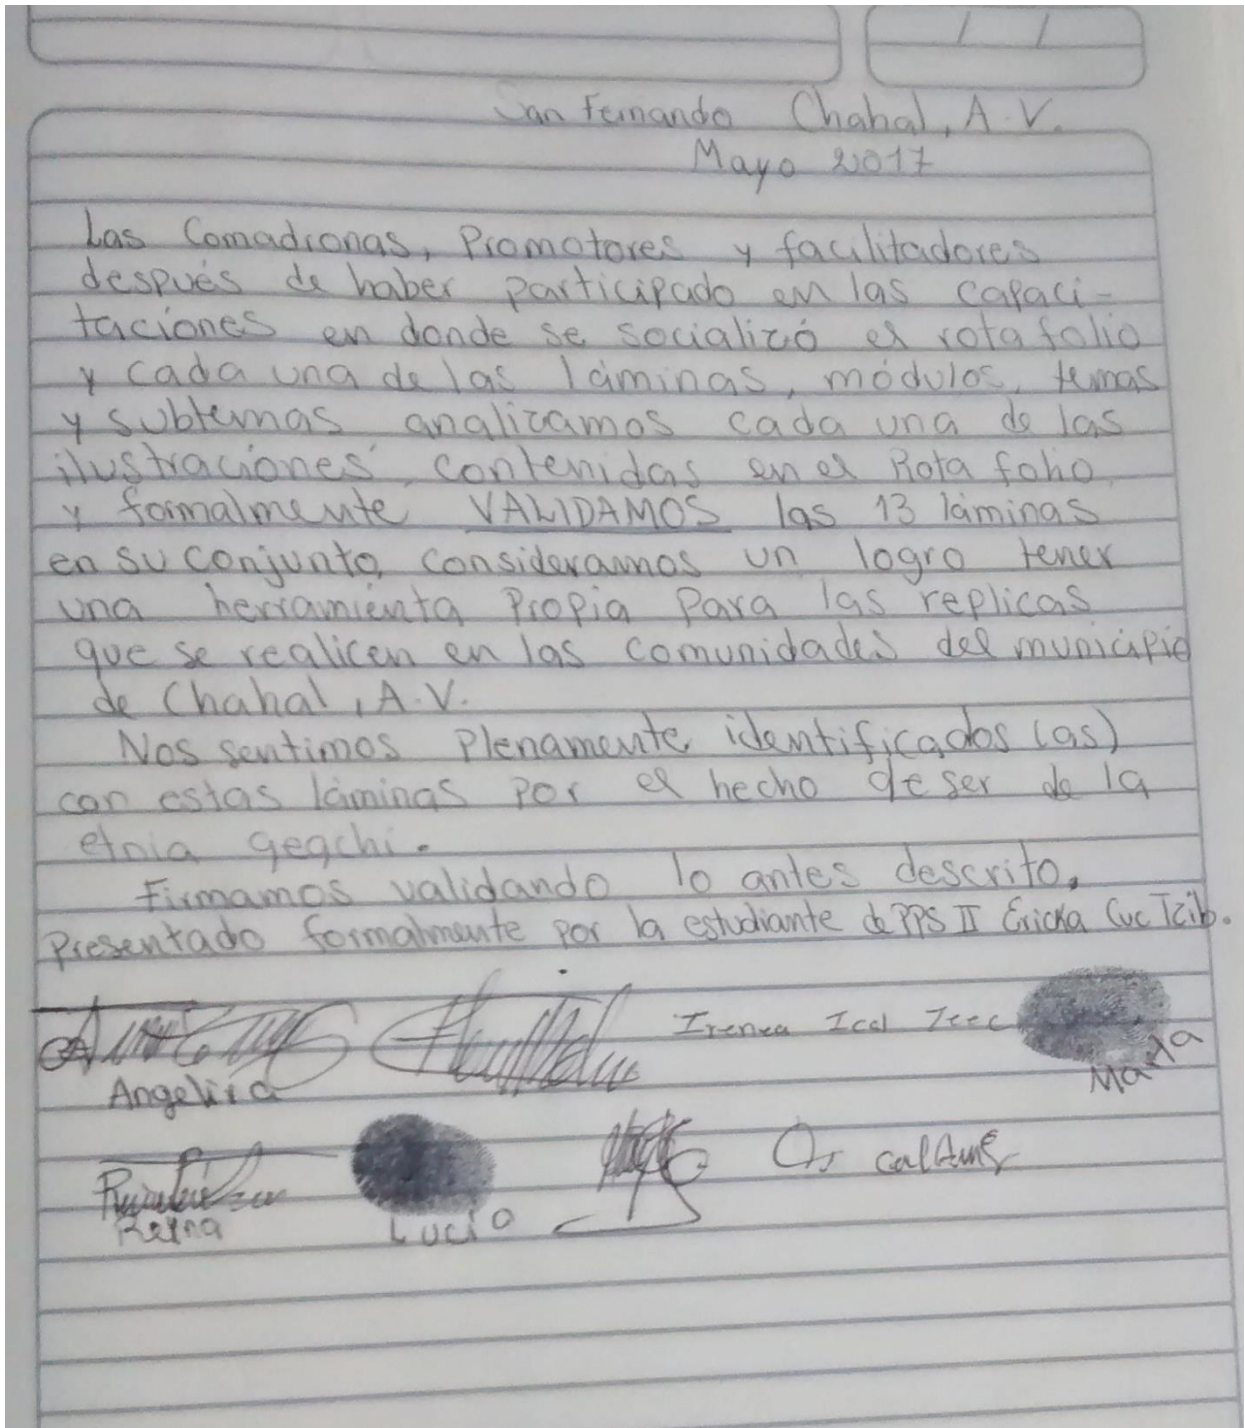 San Fernando Chahal, A.V.
Mayo 2017
Las Comadronas, Promotores y facilitadores
después de haber participado en las capaci-
taciones en donde se socializó el rotafolio
y cada una de las láminas, módulos, temas
y subtemas analizamos cada una de las
ilustraciones contenidas en el Rota folio
y formalmente VALIDAMOS las 13 láminas
en su conjunto, consideramos un logro tener
una herramienta Propia Para las replicas
que se realicen en las comunidades del municipio
de Chahal, A.V.
Nos sentimos Plenamente identificados (as)
con estas láminas por el hecho de ser de la
etnia qeqchi.
Firmamos validando lo antes descrito.
Presentado formalmente por la estudiante de PPS II Ericka Cuc Tzib.
Irenea Ical
Angelica
Marta
Reyna
Lucio